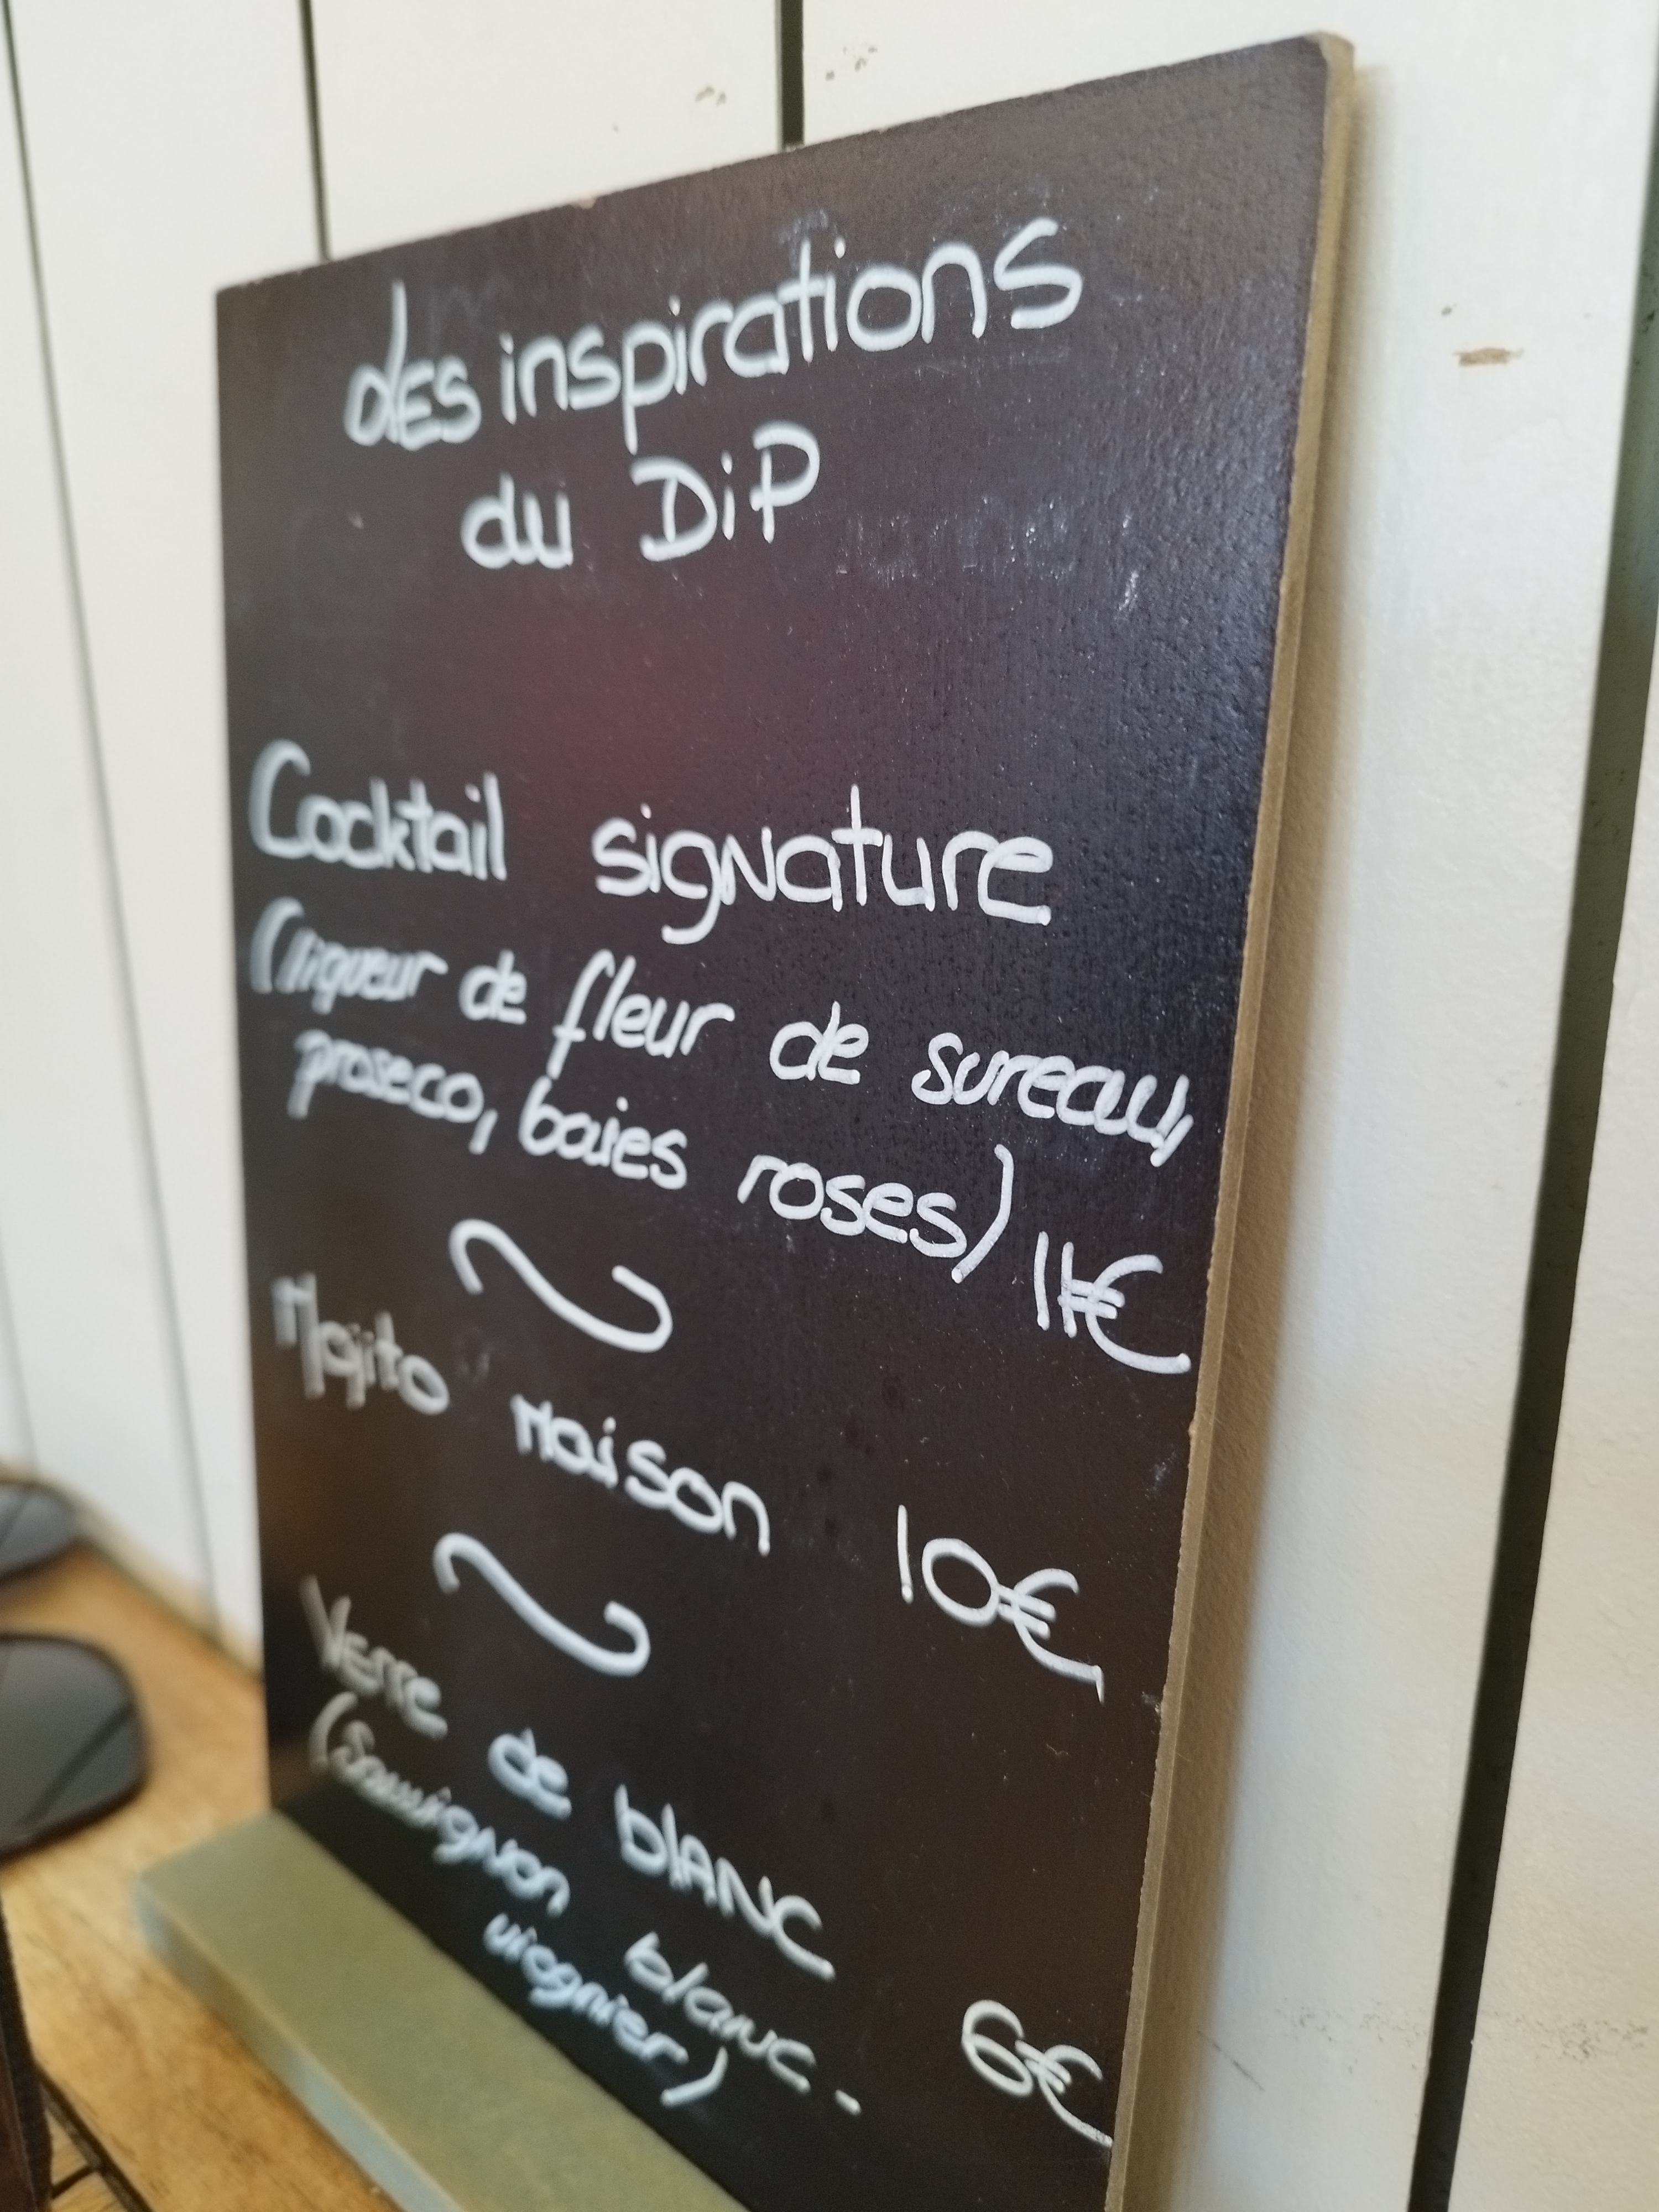 des inspirations
du DiP
Cocktail signature
(liqueur de fleur de sureau,
proseco, baies roses) 11€
Mojito maison 10€
Verre de blanc 6€
(sauvignon blanc -
viognier)